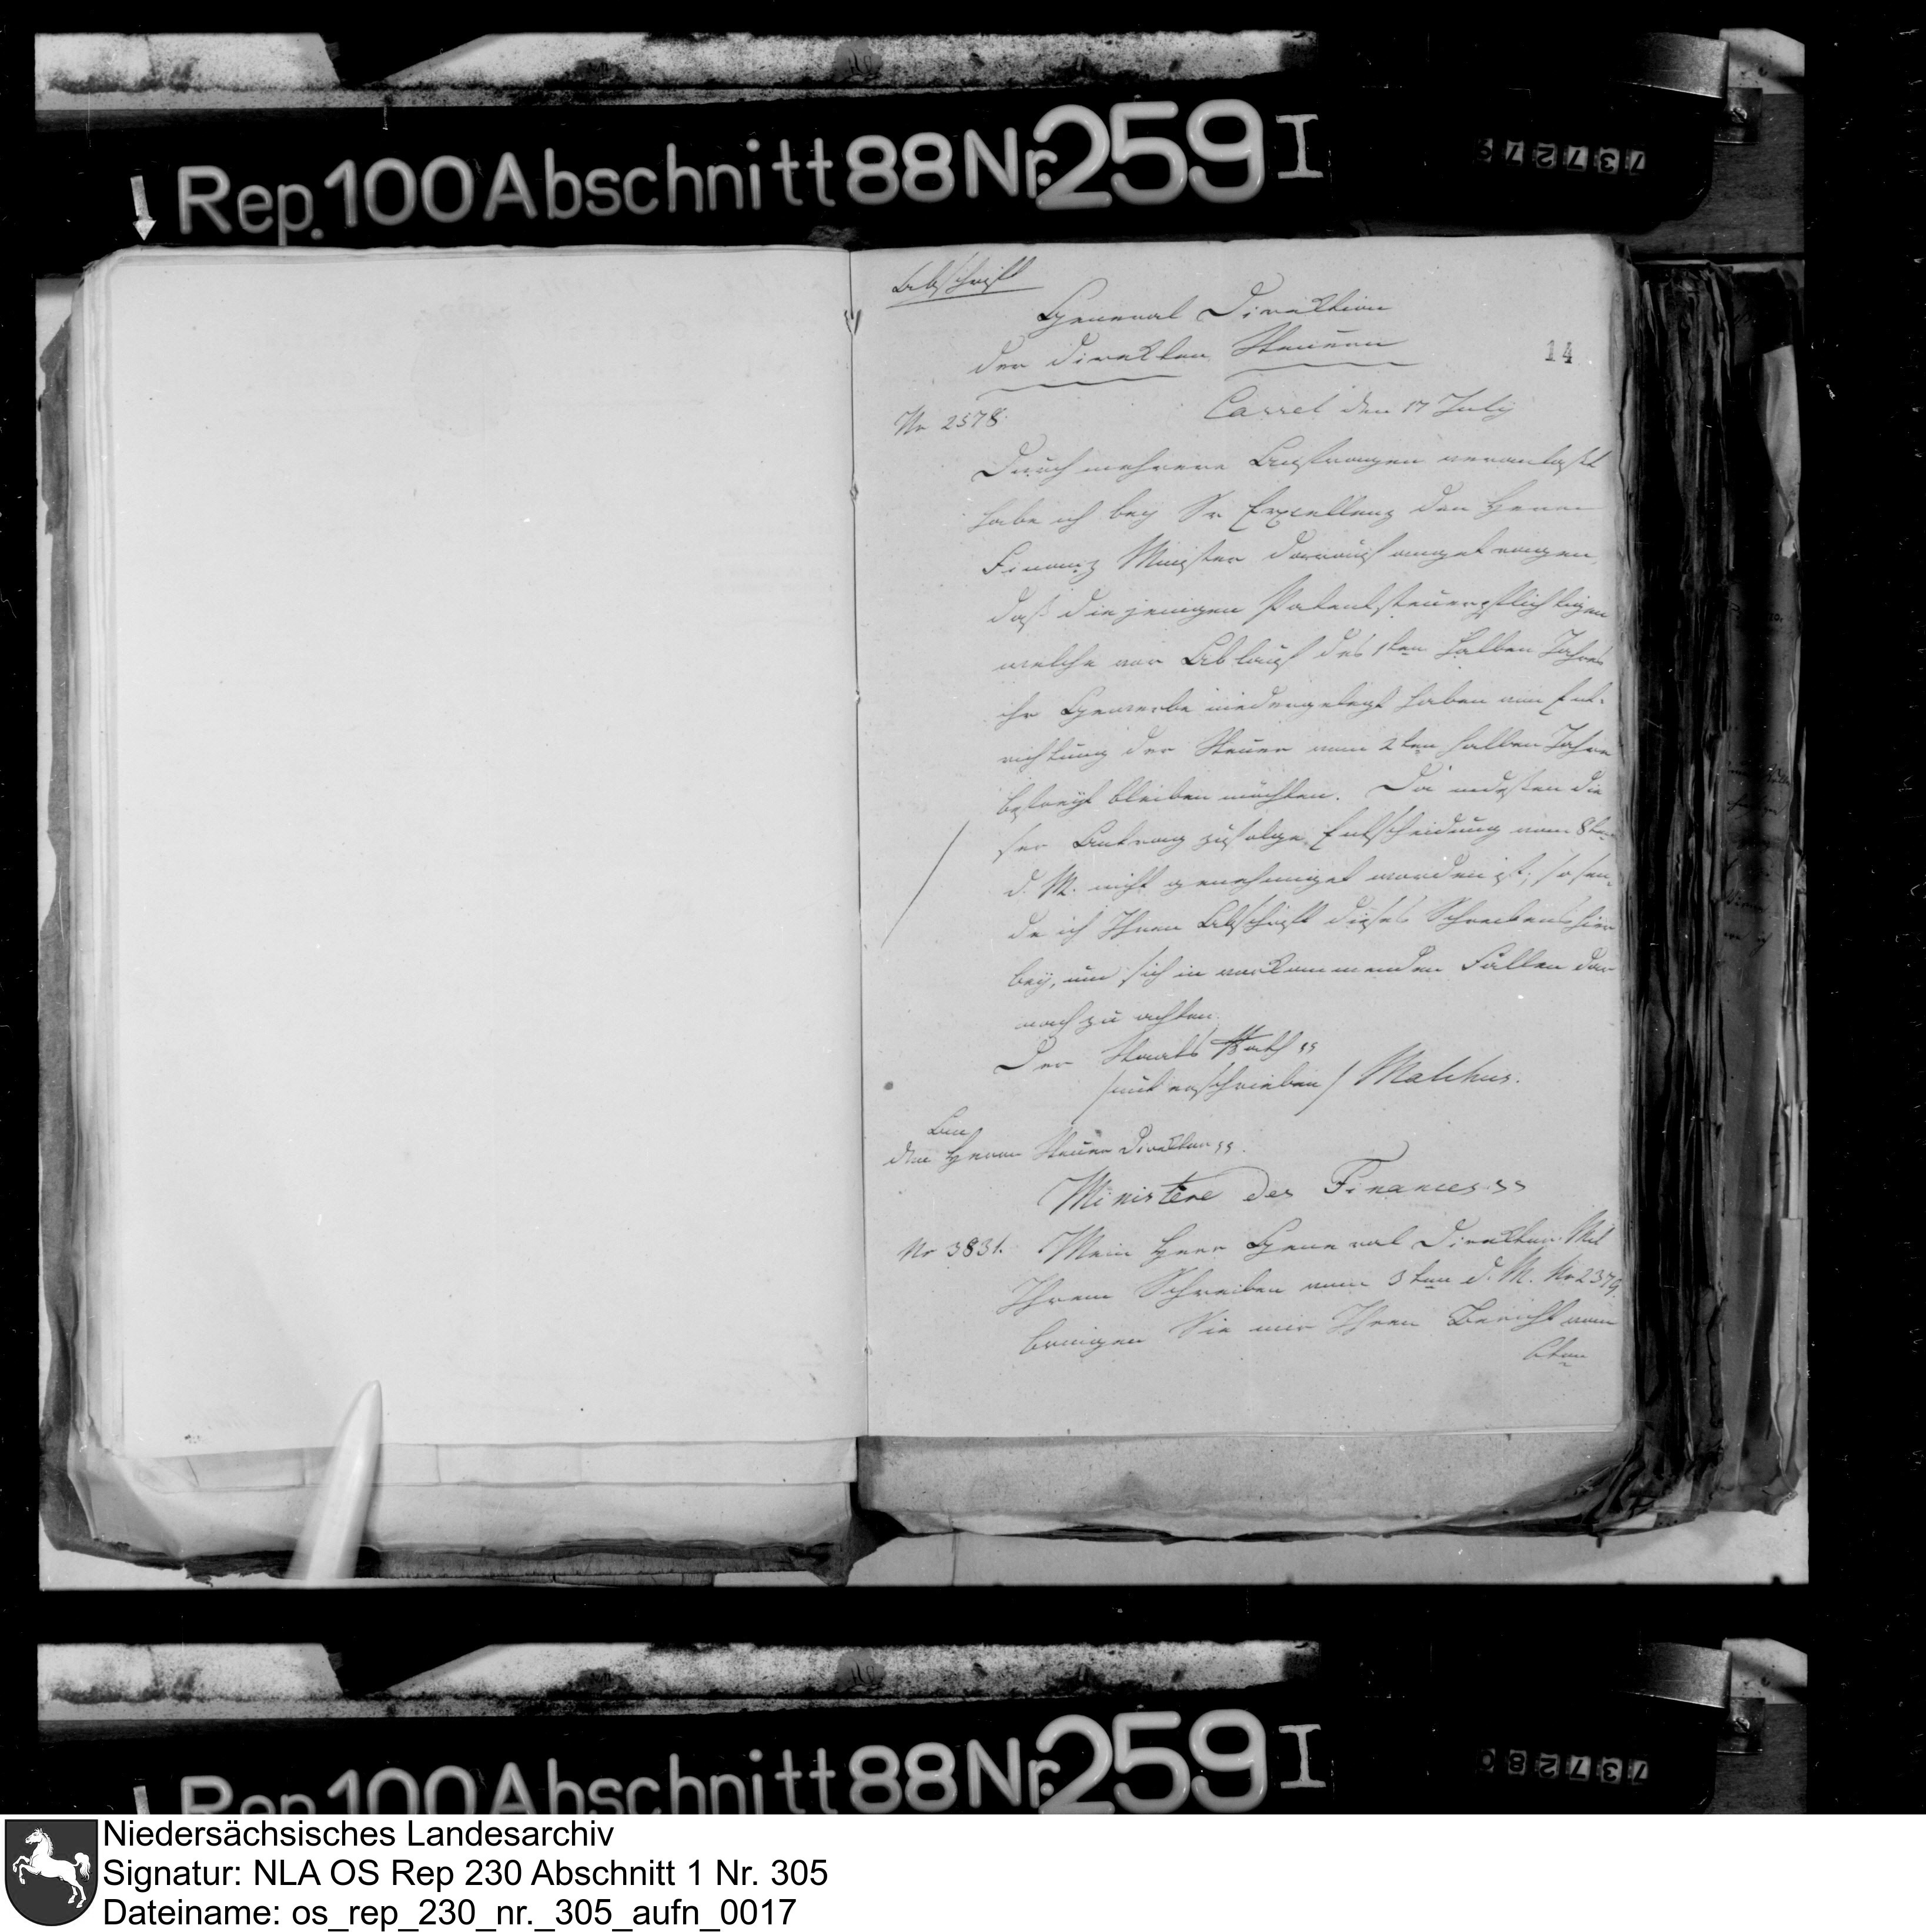 Rep. 100 Abschnitt 88 Nr. 259 I
737279
Abschrift
General Direktion
der direkten Steuern
14
Cassel den 17 July
Nr 2578.
Durch mehrere Anfragen veranlaßt
habe ich bey Sr Excellenz den Herrn
Finanz Minister darauf angetragen,
daß diejenigen Patentsteuerpflichtigen
welche vor Ablauf des 1ten halben Jahres
ihr Gewerbe niedergelegt haben von Ent-
richtung der Steuer vom 2ten halben Jahre
befreyt bleiben möchten. Da indessen die
ser Antrag zufolge Entscheidung vom 8ten
d. M. nicht genehmiget worden ist; so sen-
de ich Ihnen Abschrift dieses Schreibens hier
bey, um sich in vorkommenden Fällen dar
nach zu achten.
Der Staats Rath
/unterschrieben/ Malchus.
An
den Herrn Steuer Direktor
Ministere des Finances
Nr 3831. Mein Herr General Direktor. Mit
Ihrem Schreiben vom 3ten d. M. Nr 2379
bringen Sie mir Ihren Bericht vom
6ten
Rep. 100 Abschnitt 88 Nr. 259 I
737280
Niedersächsisches Landesarchiv
Signatur: NLA OS Rep 230 Abschnitt 1 Nr. 305
Dateiname: os_rep_230_nr._305_aufn_0017